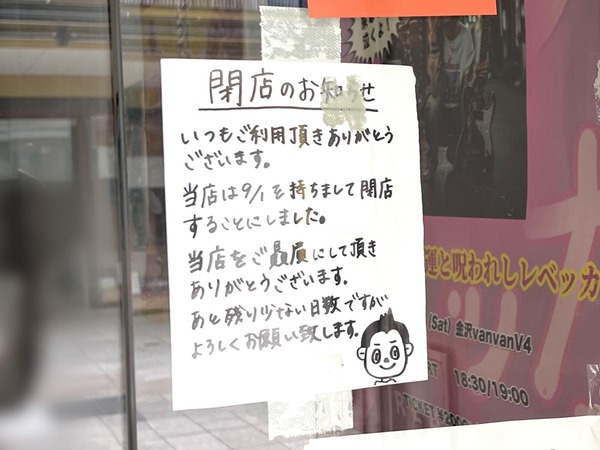 閉店のお知らせ
いつもご利用頂きありがとう
ございます。
当店は9/1を持ちまして閉店
することにしました。
当店をご贔屓にして頂き
ありがとうございます。
あと残り少ない日数ですが
よろしくお願い致します。
運と呪われしレベッカ
(Sat) 金沢vanvanV4
18:30/19:00
TICKET ¥2000